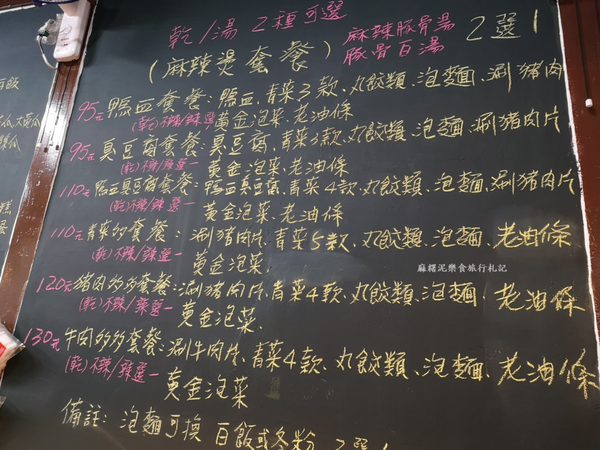 乾/湯 2種可選
(麻辣燙套餐) 麻辣豚骨湯 豚骨白湯 2選1
95元 鴨血套餐：鴨血、青菜3款、丸餃類、泡麵、涮豬肉片
(乾)不辣/辣選一 黃金泡菜、老油條
95元 臭豆腐套餐：臭豆腐、青菜3款、丸餃類、泡麵、涮豬肉片
(乾)不辣/辣選一 黃金泡菜、老油條
110元 鴨血臭豆腐套餐：鴨血臭豆腐、青菜4款、丸餃類、泡麵、涮豬肉片
(乾)不辣/辣選一 黃金泡菜、老油條
110元 青菜多套餐：涮豬肉片、青菜5款、丸餃類、泡麵、老油條
(乾)不辣/辣選一 黃金泡菜
麻糬泥樂食旅行札記
120元 豬肉多多套餐：涮豬肉片、青菜4款、丸餃類、泡麵、老油條
(乾)不辣/辣選一 黃金泡菜
130元 牛肉多多套餐：涮牛肉片、青菜4款、丸餃類、泡麵、老油條
(乾)不辣/辣選一 黃金泡菜
備註：泡麵可換 白飯或冬粉 2選1